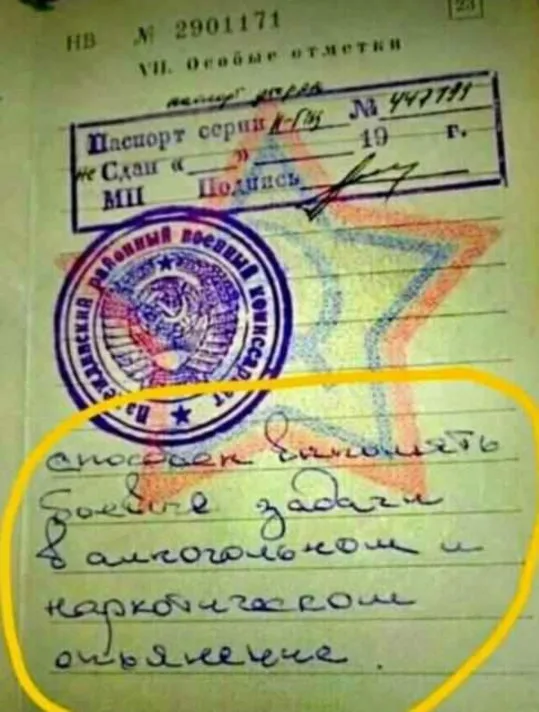 23
НВ № 2901171
VII. Особые отметки
паспорт утерян
Паспорт серии II-ГЛЦ № 447199
не Сдан «___»________ 19 г.
МП Подпись
Надеждинский районный военный комиссариат
способен выполнять
боевые задачи
в алкогольном и
наркотическом
опьянение.